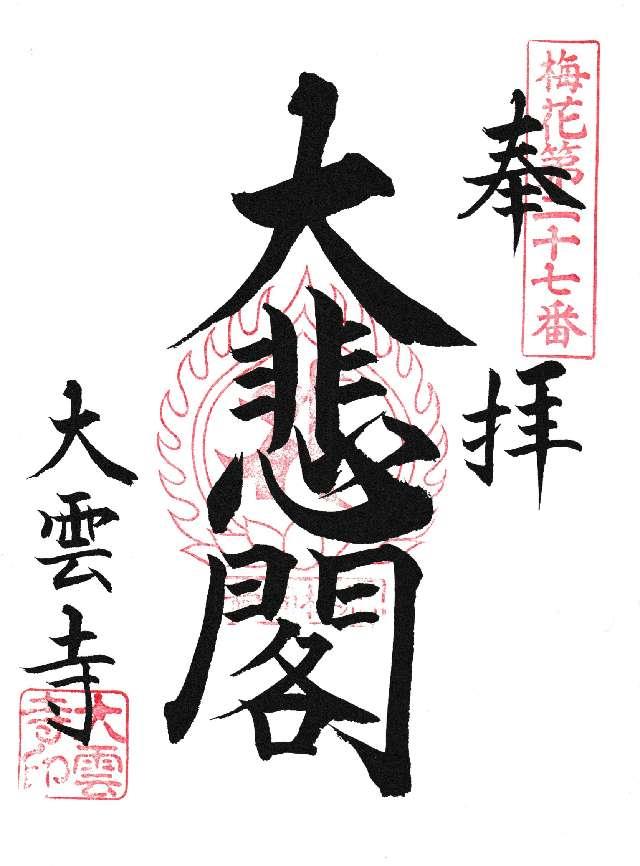 梅花第三十七番
奉拝
大悲閣
大雲寺
大雲寺印